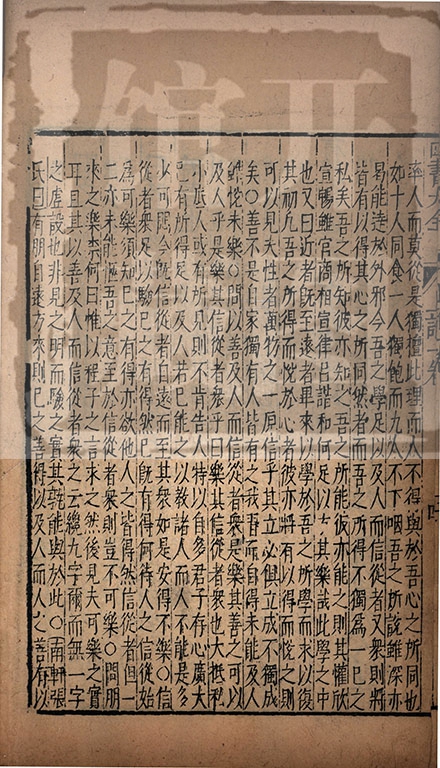 率人而莫從是獨擅此理而人不得與於吾心之所同也
如十人同食一人獨飽而九人不下咽吾之所說雖深亦
易能達於外邪今吾之學足以及人而信從者又衆則將
皆有以得其心之所同然者而吾之所得不獨爲一己之
私矣吾之所知彼亦知之吾之所能彼亦能之則其懽欣
宣暢雖宮商相宣律呂諧和何足以方其樂哉此學之中
也又曰近者旣至遠者畢來以學於吾之所學而求以復
其初凡吾之所得而悅於心者彼亦將有以得而悅之則
可以見夫性者萬物之一原信乎其立必俱立成不獨成
矣○善不是自家獨有人皆有之我習而自得未能及人
雖悅未樂○問以善及人而信從者衆是樂其善之可以
及人乎是樂其信從者衆乎曰樂其信從者衆也大抵私
小底人或有所見則不肯告人持以自多君子存心廣大
己有所得足以及人若己能之以教諸人而人不能是多
少可悶今旣信從者自遠而至其衆如是安得不樂○信
從者衆足以驗己之有得然己旣有得何待人之信從始
爲可樂須知己之有得亦欲他人之皆得然信從者但一
二亦未能愜吾之意至於信從者衆則豈不可樂○問朋
來之樂奈何曰惟以程子之言求之然後見夫可樂之實
耳且其以善及人而信從者衆之云纔九字爾而無一字
之虛設也非見之明而驗之實其孰能與於此○南軒張
氏曰有朋自遠方來則己之善得以及人而人之善有以
四書大全